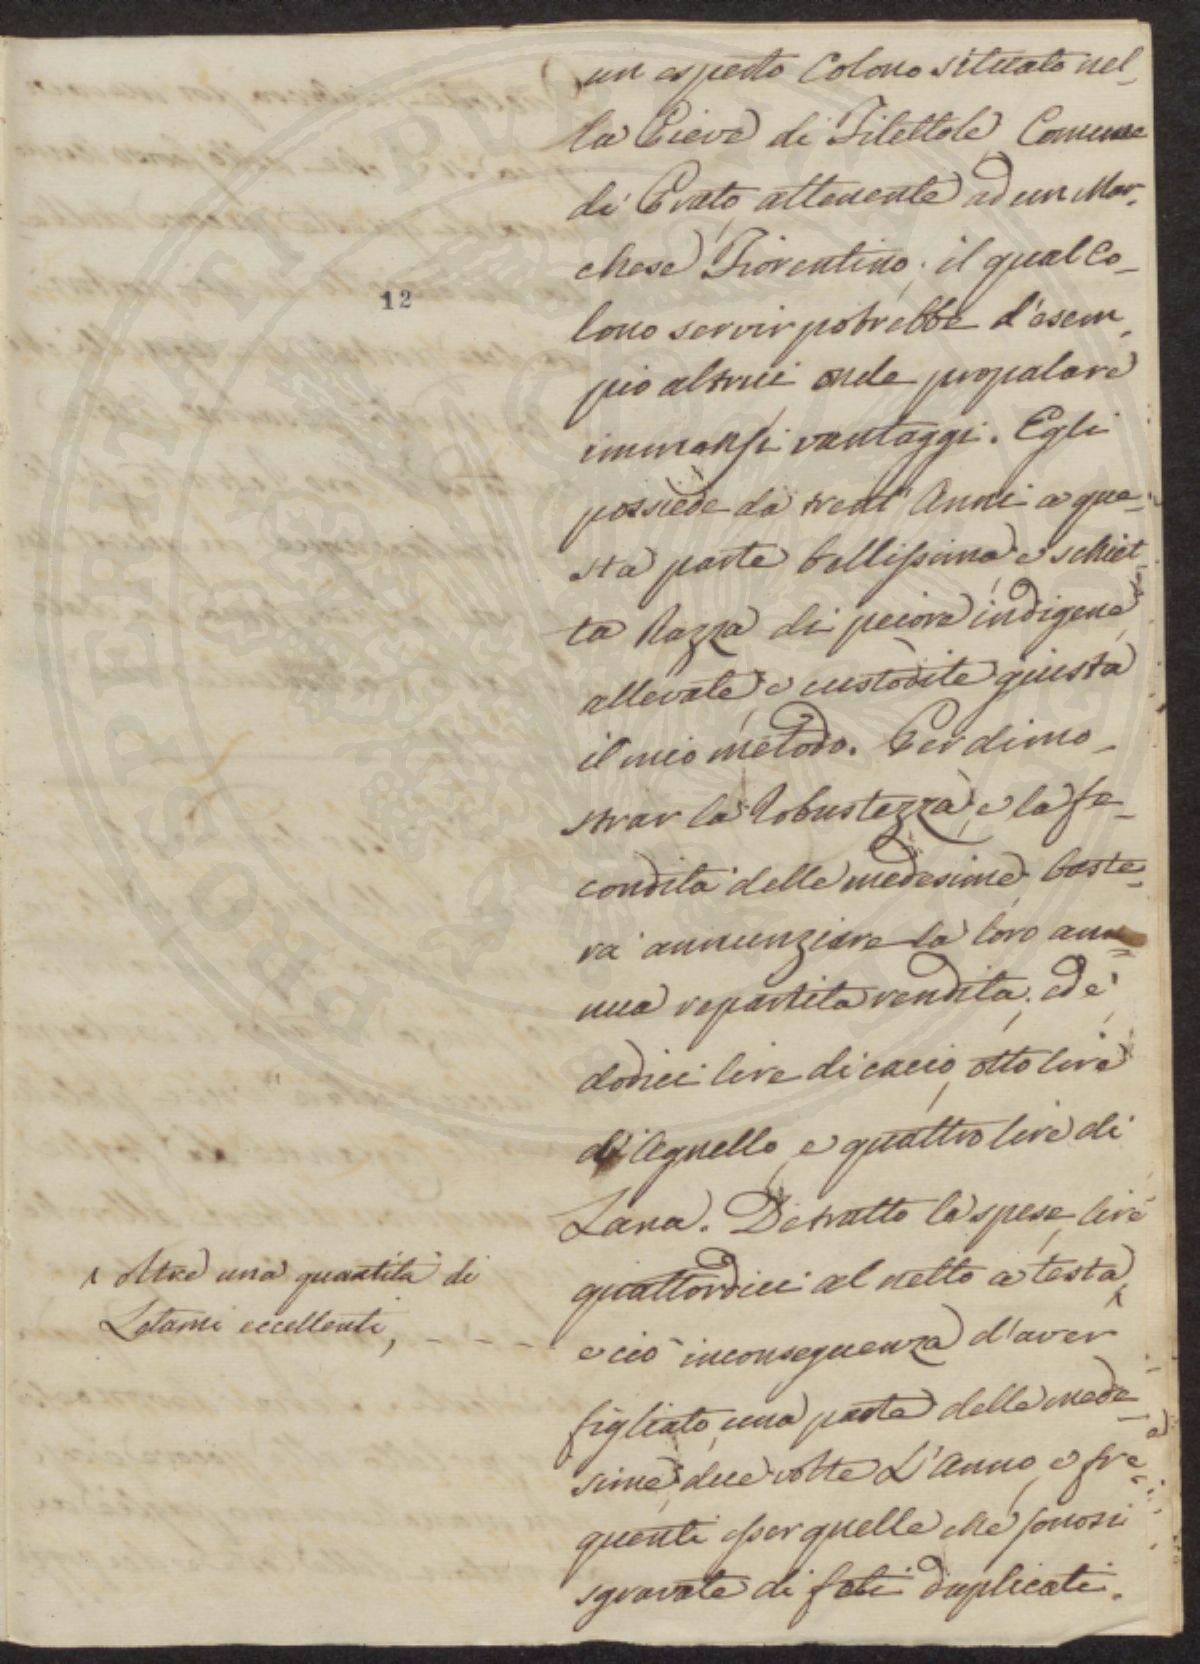 un esperto Colono situato nel-
la Pieve di Filettole Comune
di Prato, attenente ad un Mar-
chese Fiorentino; il qual Co-
lono servir potrebbe d'esem-
pio altrui onde propalare
immensi vantaggi. Egli
possiede da trent'Anni a que-
sta parte bellissima e schiet
ta Razza di pecore indigene
allevate e custodite giusta
il mio metodo. Per dimo-
strar la Robustezza, e la fe-
condita delle medesime baste-
rà annunziare la loro an-
nua repartita rendita, ed è
dodici lire di cacio, otto lire
di Agnello, e quattro lire di
Lana. Detratto le spese, lire
quattordici al netto a testa,
12
^ oltre una quantità di
Letami eccellenti, - - - -
e ciò inconseguenza d'aver
figliato una parte delle mede-
sime due volte L'Anno, e fre-
quenti esser quelle che sonosi
sgravate di feti duplicati.